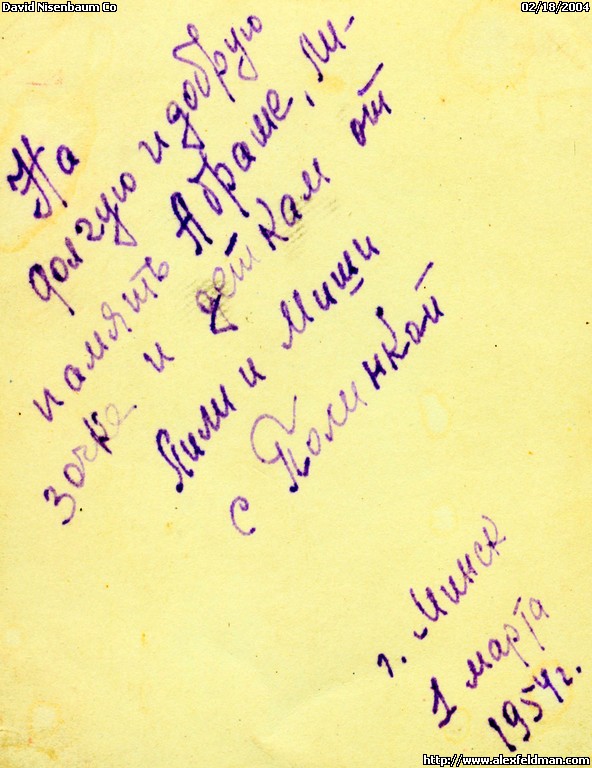 David Nisenbaum Co
02/18/2004
На
долгую и добрую
память Абраше, Ли-
зочке и деткам от
Лили и Миши
с Полинкой
г. Минск
1 марта
1954г.
http://www.alexfeldman.com